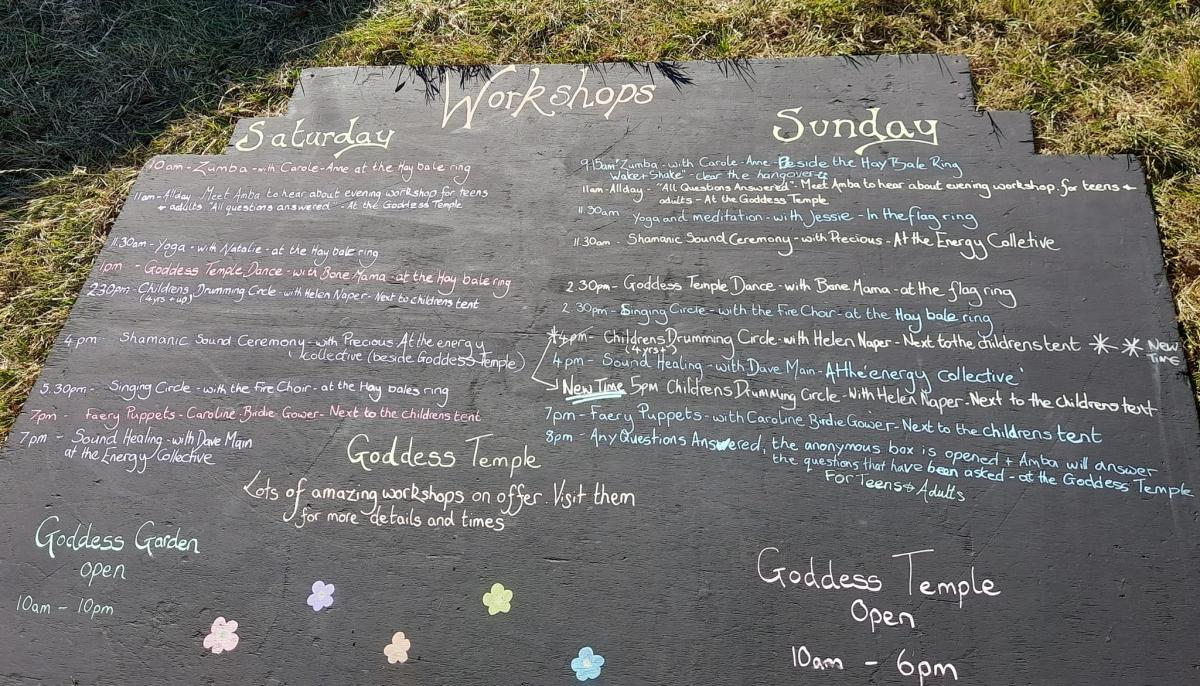 Workshops
Saturday
10am - Zumba - with Carole-Anne at the Hay bale ring
11am - Allday Meet Amba to hear about evening workshop for teens
+ adults "All questions answered" - At the Goddess Temple
11.30am - Yoga - with Natalie - at the Hay bale ring
1pm - Goddess Temple Dance - with Bone Mama - at the Hay bale ring
2.30pm - Childrens Drumming Circle - with Helen Naper - Next to childrens tent
(4yrs + up)
4pm - Shamanic Sound Ceremony - with Precious At the energy
collective (beside Goddess Temple)
5.30pm - Singing Circle - with the Fire Choir - at the Hay bales ring
7pm - Faery Puppets - Caroline.Birdie Gower - Next to the childrens tent
7pm - Sound Healing - with Dave Main
at the Energy Collective
Goddess Temple
Lots of amazing workshops on offer. Visit them
for more details and times
Goddess Garden
open
10am - 10pm
Sunday
9.15am Zumba - with Carole-Anne - Beside the Hay Bale Ring
Wake + Shake" - clear the hangover
11am - Allday - "All Questions Answered" - Meet Amba to hear about evening workshop for teens +
adults - At the Goddess Temple
11.30am Yoga and meditation - with Jessie - In the flag ring
11.30am - Shamanic Sound Ceremony - with Precious - At the Energy Colletive
2.30pm - Goddess Temple Dance - with Bone Mama - at the flag ring
2.30pm - Singing Circle - with the Fire Choir - at the Hay bale ring
*4pm - Childrens Drumming Circle - with Helen Naper - Next to the childrens tent * * New
Time
(4yrs+)
4pm - Sound Healing - with Dave Main - At the 'energy collective'
New Time 5pm Childrens Drumming Circle - With Helen Naper - Next to the childrens tent
7pm - Faery Puppets - with Caroline Birdie Gower - Next to the childrens tent
8pm - Any Questions Answered, the anonymous box is opened + Amba will answer
the questions that have been asked - at the Goddess Temple
For Teens + Adults
Goddess Temple
Open
10am - 6pm